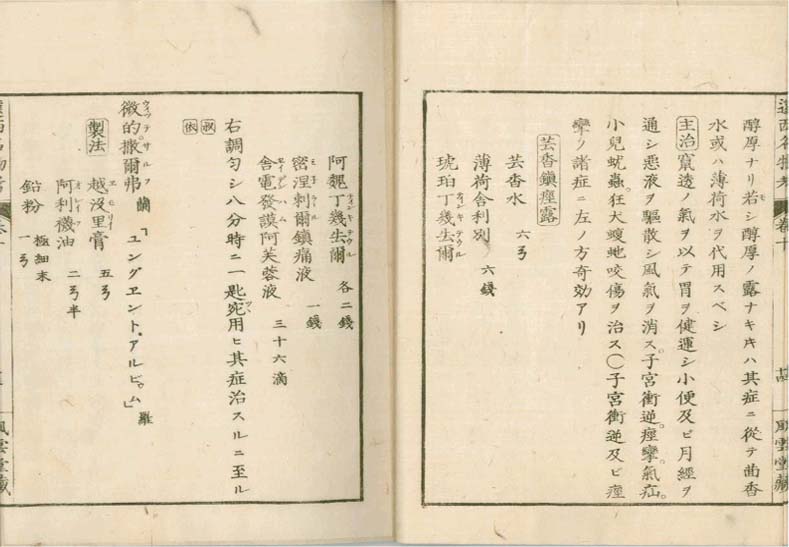 醇厚ナリ若シ醇厚ノ露ナキ𪜈ハ其症ニ從テ茴香
水或ハ薄荷水ヲ代用スベシ
主治竄透ノ氣ヲ以テ胃ヲ健運シ小便及ビ月經ヲ
通シ悪液ヲ驅散シ風氣ヲ消ス。子宮衝逆。痙攣。氣疝。
小兒蚘蟲。狂犬蝮虵咬傷ヲ治ス〇子宮衝逆及ビ痙
攣ノ諸症ニ左ノ方奇効アリ
芸香鎭痙露
芸香水 六ヲ
薄荷舎利別 六錢
琥珀丁幾去爾
阿魏丁幾去爾 各二錢
密涅剌爾鎮痛液 一錢
舎電發謨阿芙蓉液 三十六滴
右調匀シ八分時ニ一匙宛用ヒ其症治スルニ至ル
叔
依
微的撒爾弗 蘭「ユングエント・アルビュム」羅
製法 越没里膏 五ヲ
阿利襪油 二ヲ半
鉛粉 極細末 一ヲ
遠西名物考 卷十
風雲堂藏